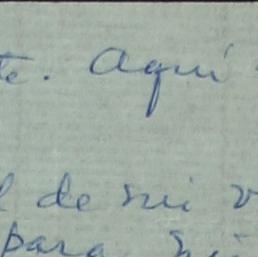 te. Aquí
de mi v
para mi